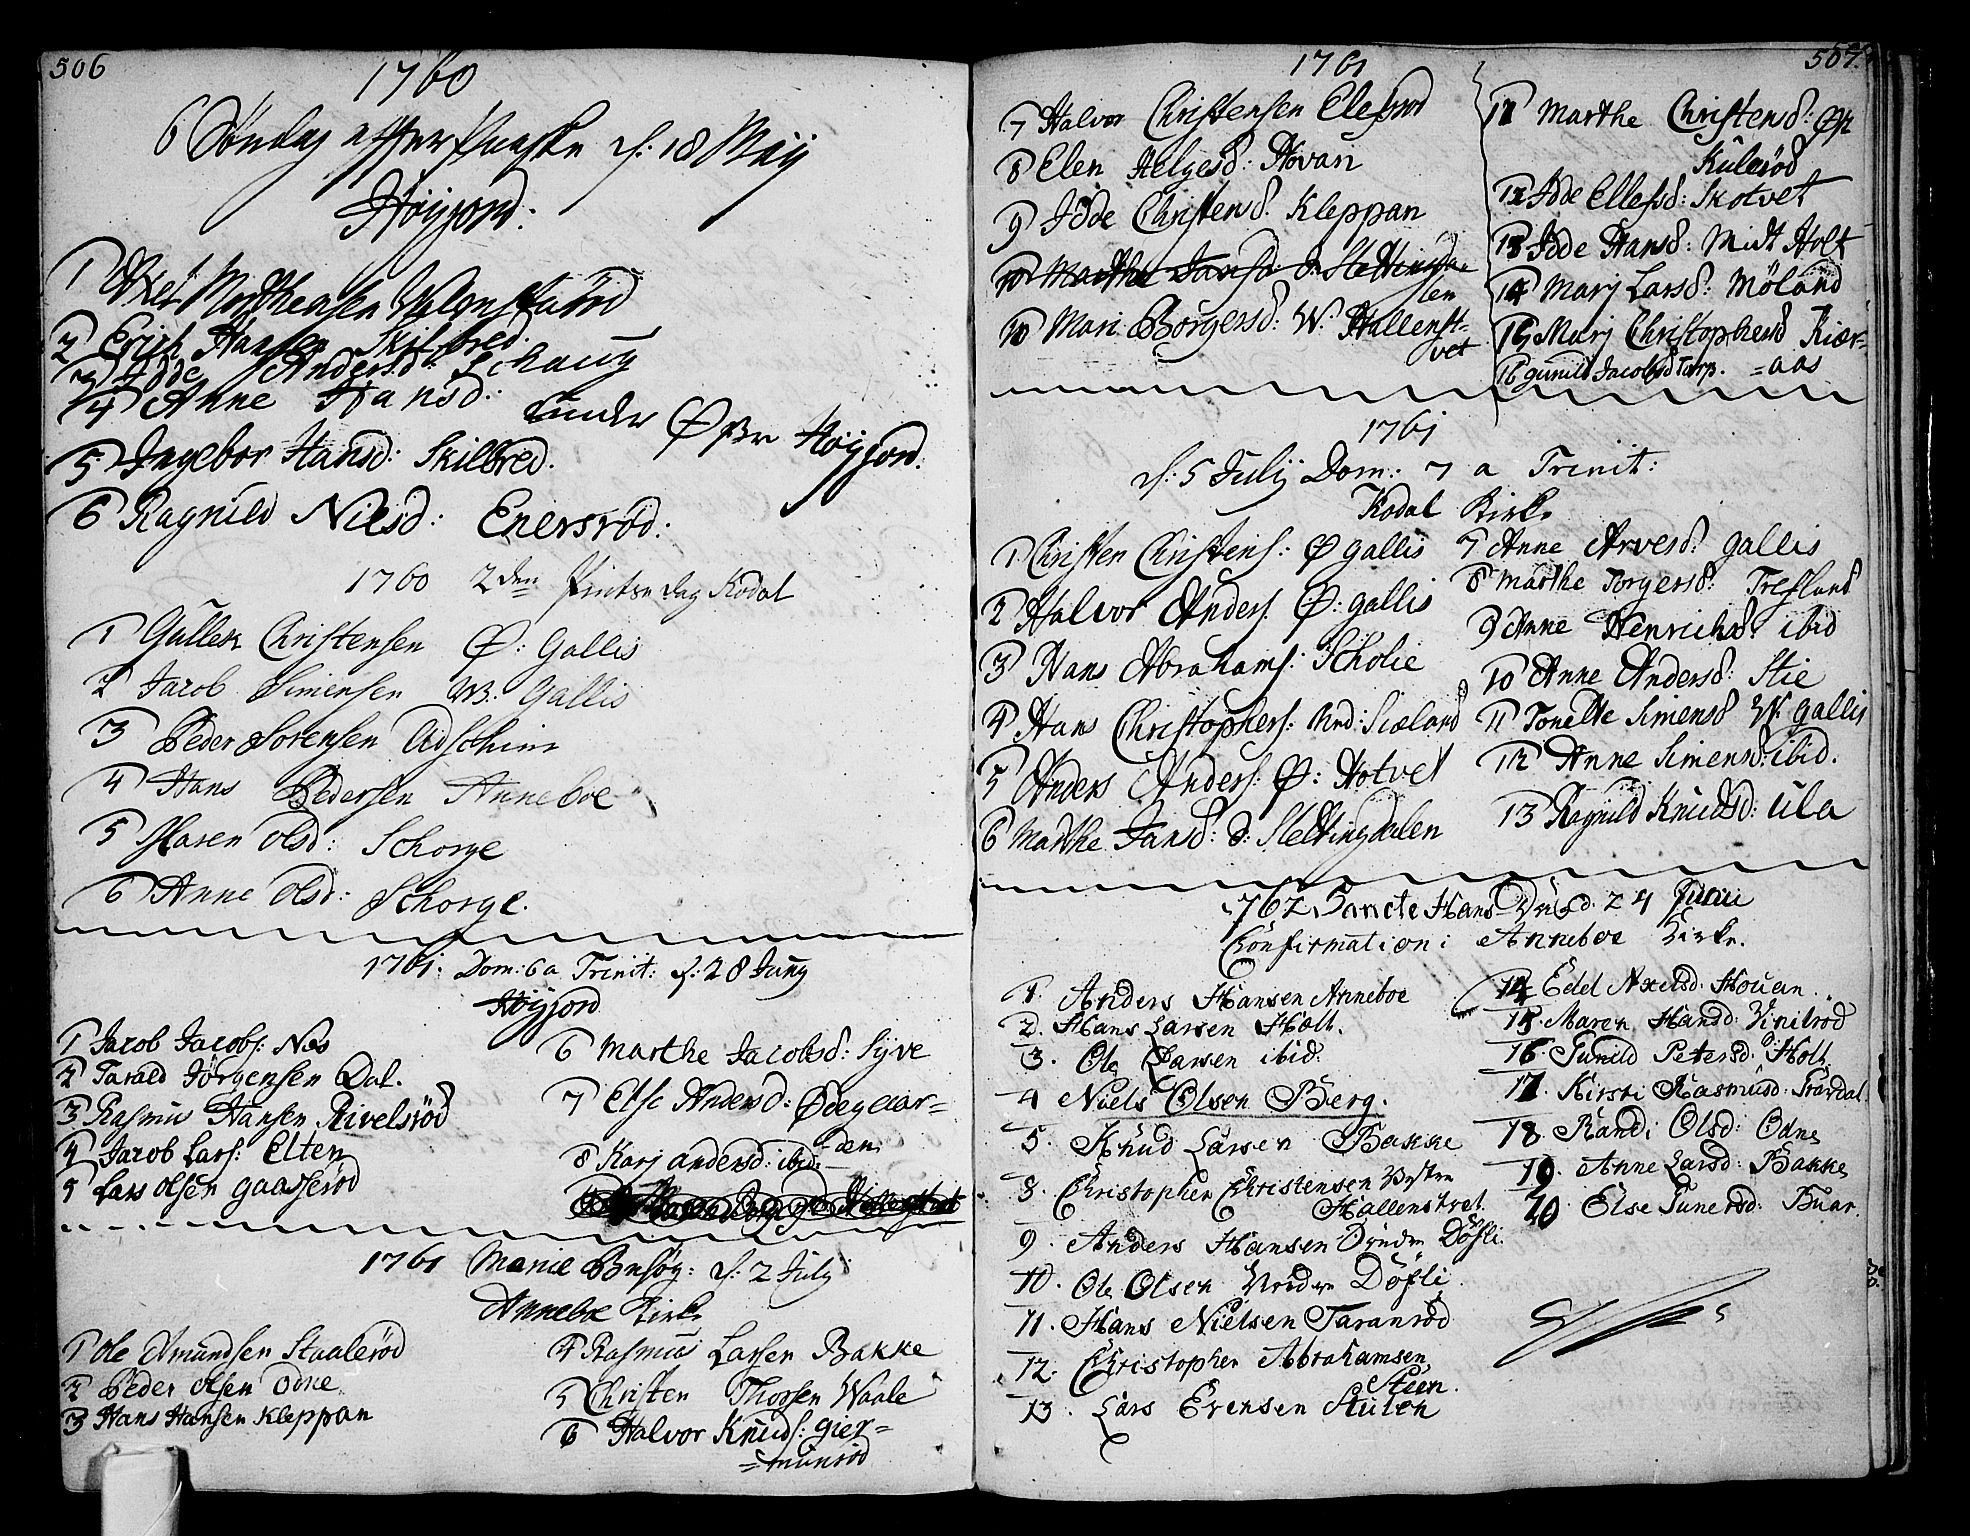 506
1760
6 Søndag efter Paaske d: 18 Maij
Høijjord:
1 Axel Matthensen
2 Erich Hansen Skilbred.
3 Jdde Andersd: Schaug
4 Anne Hansd: under Øfre Høijjord:
5 Ingebor Hansd: Skilbred.
6 Ragnild Nilsd: Enersröd:
1760 2den Pintse dag Kodal
1 Gullek Christensen Ø: Gallis
2 Jacob Simensen W: Gallis
3 Peder Sörensen
4 Hans Pedersen Anneboe
5 Maren Olsd: Schorge
6 Anne Olsd: Schorge.
1761. Dom: 6 a Trinit: d: 28 Junij
Høijjord
1 Jacob Jacobs: Næs
2 Tarald Jörgensen Dal.
3 Rasmus Hansen Rivelsröd
4 Jacob Lars: Elten
5 Lars Olsen gaaseröd
6 Marthe Jacobsd: Syve
7 Else Andersd: Ødegaar=
den
8 Karj andersd: ibid:
1761 Mariæ Besøg: d: 2 July
Anneboe Kirke
1 Ole Amundsen Staaleröd
2 Peder Olsen Odne
3 Hans Hansen Kleppan
4 Rasmus Larsen Bakke
5 Christen Thorsen Waale
6 Halvor Knuds: gier=
=munröd
507.
1761
7 Halvor Christensen
8 Elen Helgesd: Hovan
9 Jdde Christensd. Kleppan
10 Marthe Jansd d: Slettingda
len
10 Mari Börgersd: W. Hallenst=
vet
11 Marthe Christensd: Øfr
Kuleröd
12 Jdde Ellefsd: Skotvet
13 Jdde Hansd: Midt Holt
14 Marj Larsd: Möland
15 Marj Christophersd Kiær=
=aas
16 gunild Jacobsd Torp.
1761
d: 5 July Dom: 7 a Trinit:
Kodal Kirke
1 Christen Christens: Ø gallis
2 Halvor Anders: Ø: gallis
3 Hans Abrahams: Scholie
4 Hans Christophers: Nrd: Siæland
5 Anders Anders: Ø: Hotvet
6 Marthe Jansd: d: Slettingdalen
7 Anne Arvesd: gallis
8 Marthe Torgersd: Trefland
9 Anne Henrichsd: ibid
10 Anne Andersd: Stie
11 Tonette Simensd W. gallis
12 Anne Simensd: ibid.
13 Ragnild Knudsd: Ula
1762 Sancte Hans Dag d. 24 Junii
Confirmation i Anneboe Kirke.
1. Anders Hansen Anneboe
2. Hans Larsen Holt.
3. Ole Larsen ibid:
4 Niels Olsen Berg.
5. Knud Larsen Bakke
8. Christopher Christensen Vestre
Hallenstvet.
9. Anders Hansen Søndre Döfli.
10. Ole Olsen Nordre Döfli.
11. Hans Nielsen Taranröd
12. Christopher Abrahamsen
Steen.
13. Lars Evensen Stulen
14 Edel Axelsd: Houan.
15. Maren Hansd: Vinilröd
16. Gunild Petersd: Holt
17. Kirsti Rasmusd:
18. Randi Olsd: Odne
19. Anne Larsd: Bakke
20. Else Gunersd: Buar.